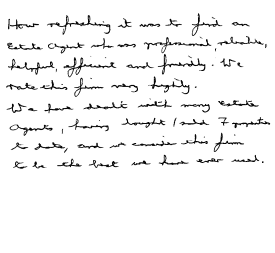 How refreshing it was to find an
Estate Agent who was professional, reliable,
helpful, efficient and friendly. We
rate this firm very highly.
We have dealt with many Estate
Agents, having bought / sold 7 properties
to date, and we consider this firm
to be the best we have ever used.